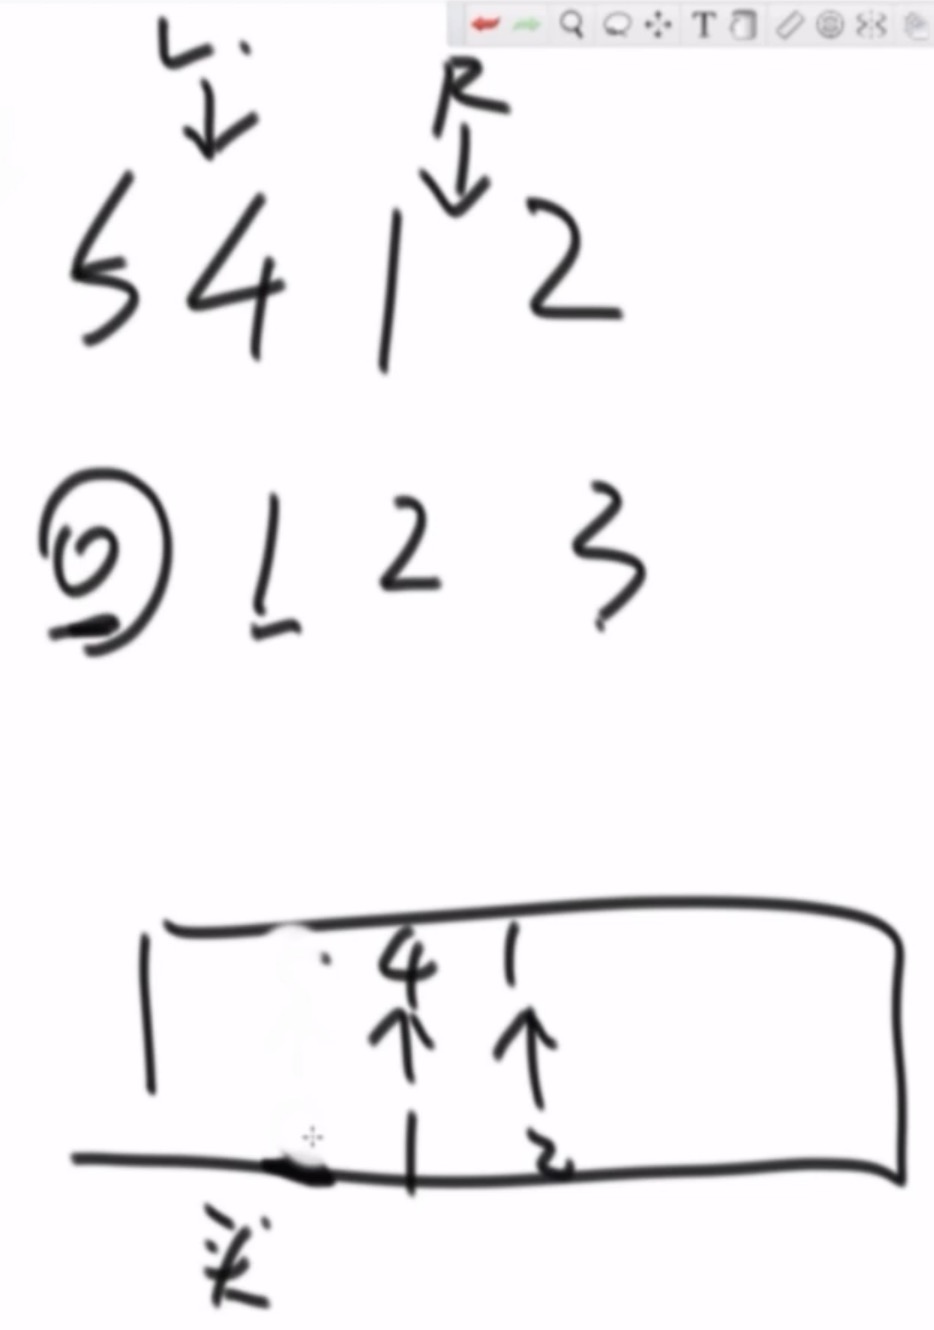 L
R
5 4 1 2
0 1 2 3
4 1
1 2
T